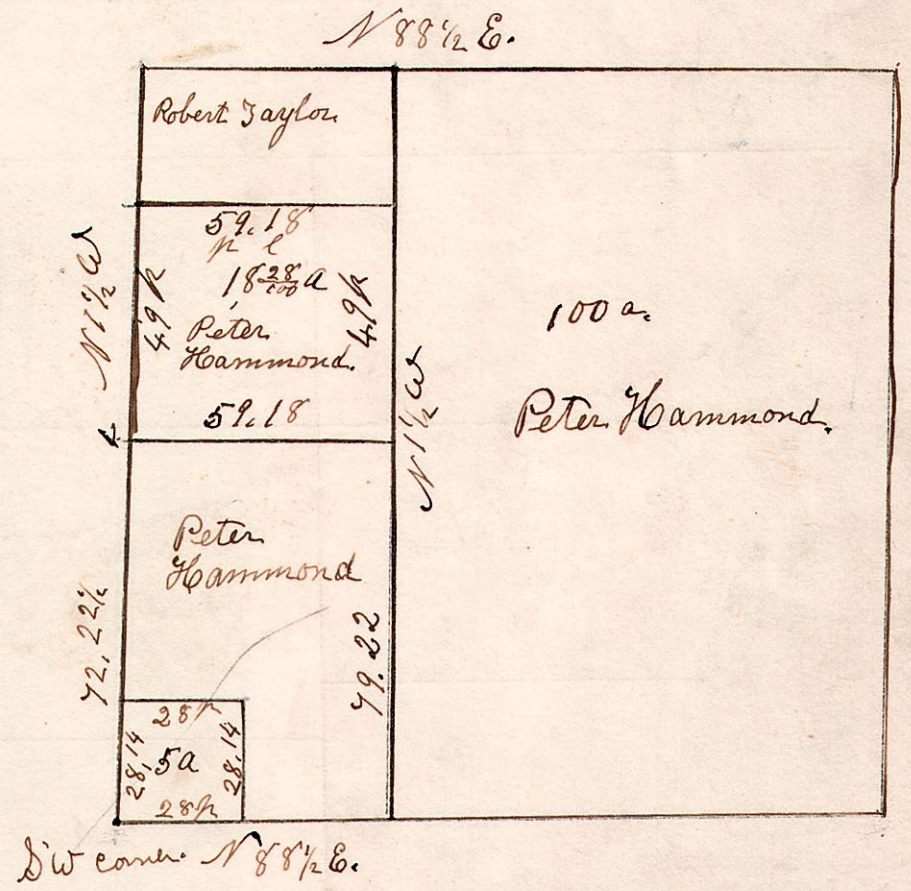 N 88 1/2 E.
Robert Taylor
59.18
p l
18 28/100 a
Peter
Hammond.
49 p
49 p
59.18
N 1 1/2 W
N 1 1/2 W
100 a.
Peter Hammond.
Peter
Hammond
79.22
28 p
28.14
5a
28.14
28 p
SW corner. N 88 1/2 E.